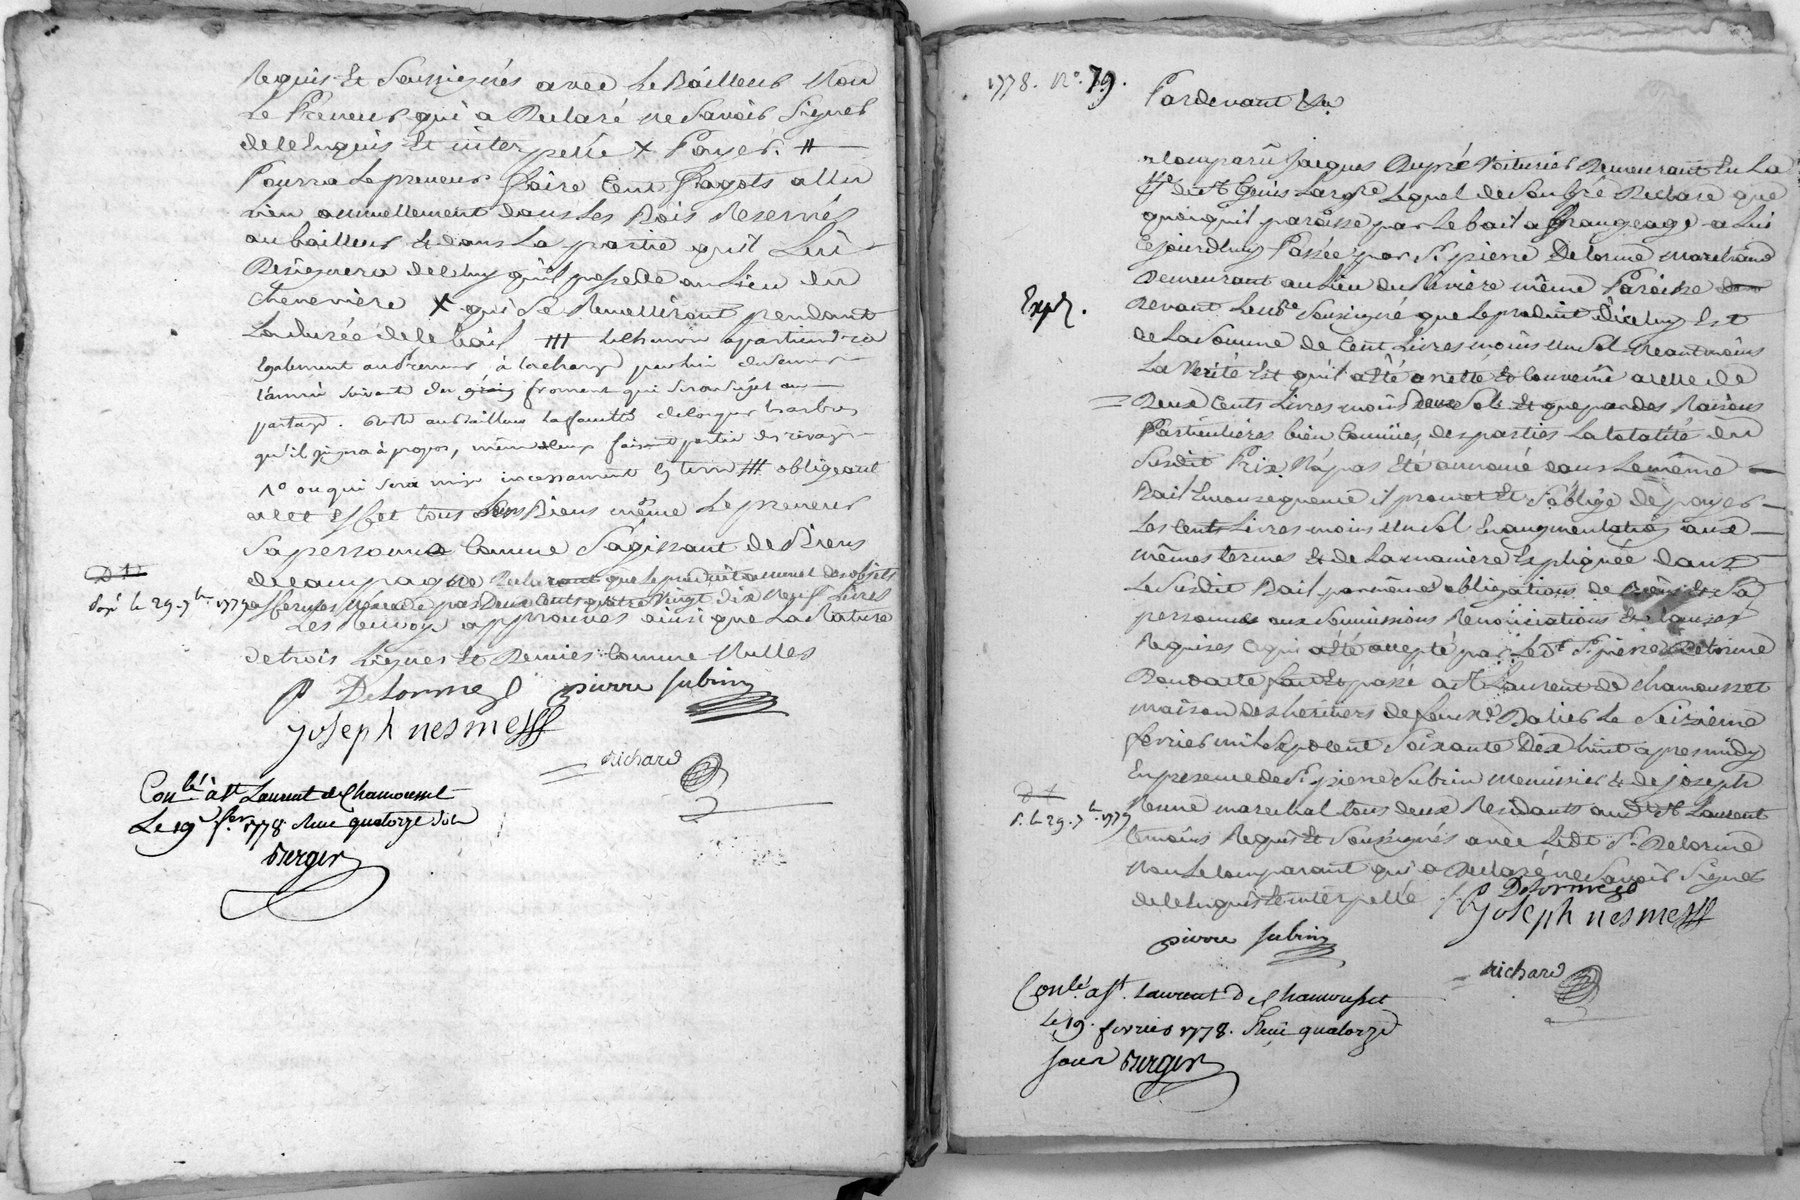 Requis Et Soussignés avec Le Bailleur Non
Le Preneur qui a Declaré ne Savoir Signer
de ce Enquis Et interpellé x Payer. #
Pourra Le preneur faire Cent fagots
annuellement dans Les Bois Reservés
au bailleur & dans La partie qu'il Lui
Designera de celuy qu'il possede au Lieu du
Chenevière x qui Se Remettront pendant
La durée de ce bail ## Le chanvre apartiendra
Egalement au Preneur, à la charge
l'année suivante du froment qui sera sujet au
partage. au bailleur la faculté de couper
qu'il jugera à propos, même ceux faisant partie des
1º ou qui sera mise incessamment ## obligeant
a cet Effet tous Ses Biens même Le preneur
Sa personne Comme S'agissant de Biens
de campagne Declarant que Le produit annuel des objets
affermés n'excede pas Deux Cents quatre Vingt dix neuf Livres
Les Renvoys approuvés ainsi que La Rature
de trois Lignes Et Demies Comme Nulles
payé le 29. 7bre 1779
P Delorme pierre subrin
joseph nesme
Richard
Conlé à St Laurent de Chamousset
Le 19 fer. 1778 Reçu quatorze sols
Berger
1778. No. 79.
Pardevant &a
a Comparû Jacques Dupré Voiturier Demeurant En La
Lequel de Son gré Declare que
quoiqu'il paraisse par Le bail a Grangeage a Lui
Cejourdhuy Passée par Sr pierre Delorme Marchand
Demeurant au Lieu du Rivière même Paroisse
Expé.
Devant Le Nre Soussigné que Le produit d'iceluy Est
de La Somme de Cent Livres moins un Sol Neantmoins
La Verité Est qu'il a Eté arretté Et Convenû a celle de
Deux Cents Livres moins Deux Sols Et que par des Raisons
Particulières bien Connües des parties La totalité du
Susdit Prix N'a pas Eté annoncé dans Le même
Bail En conséquence il promet Et S'oblige de payer
Les Cent Livres moins un Sol En augmentation aux
mêmes termes & de La maniere Expliquée dans
Le Susdit Bail par même obligations de Biens Et Sa
personne aux Soumissions Renonciations Et Clauses
Requises Ce qui a Eté accepté par Le dt Sr pierre Delorme
Dont acte fait Et passé a St Laurent de Chamousset
maison des heritiers de feu Sr Batier Le Seizieme
fevrier mil Sept cent Soixante Dix huit apres midy
En presence de Sr pierre Subrin Menuisier & de joseph
Nesme marechal tous deux Residants aud. St Laurent
P. le 29. 7bre 1779
temoins Requis Et Soussignés avec Ledt Sr Delorme
Non Le Comparant qui a Declaré ne Savoir Signer
de ce Enquis Et interpellé P Delorme
joseph nesme
pierre subrin
Richard
Conlé a St. Laurent De Chamousset
Le 19. fevrier 1778. Reçu quatorze
sols Berger